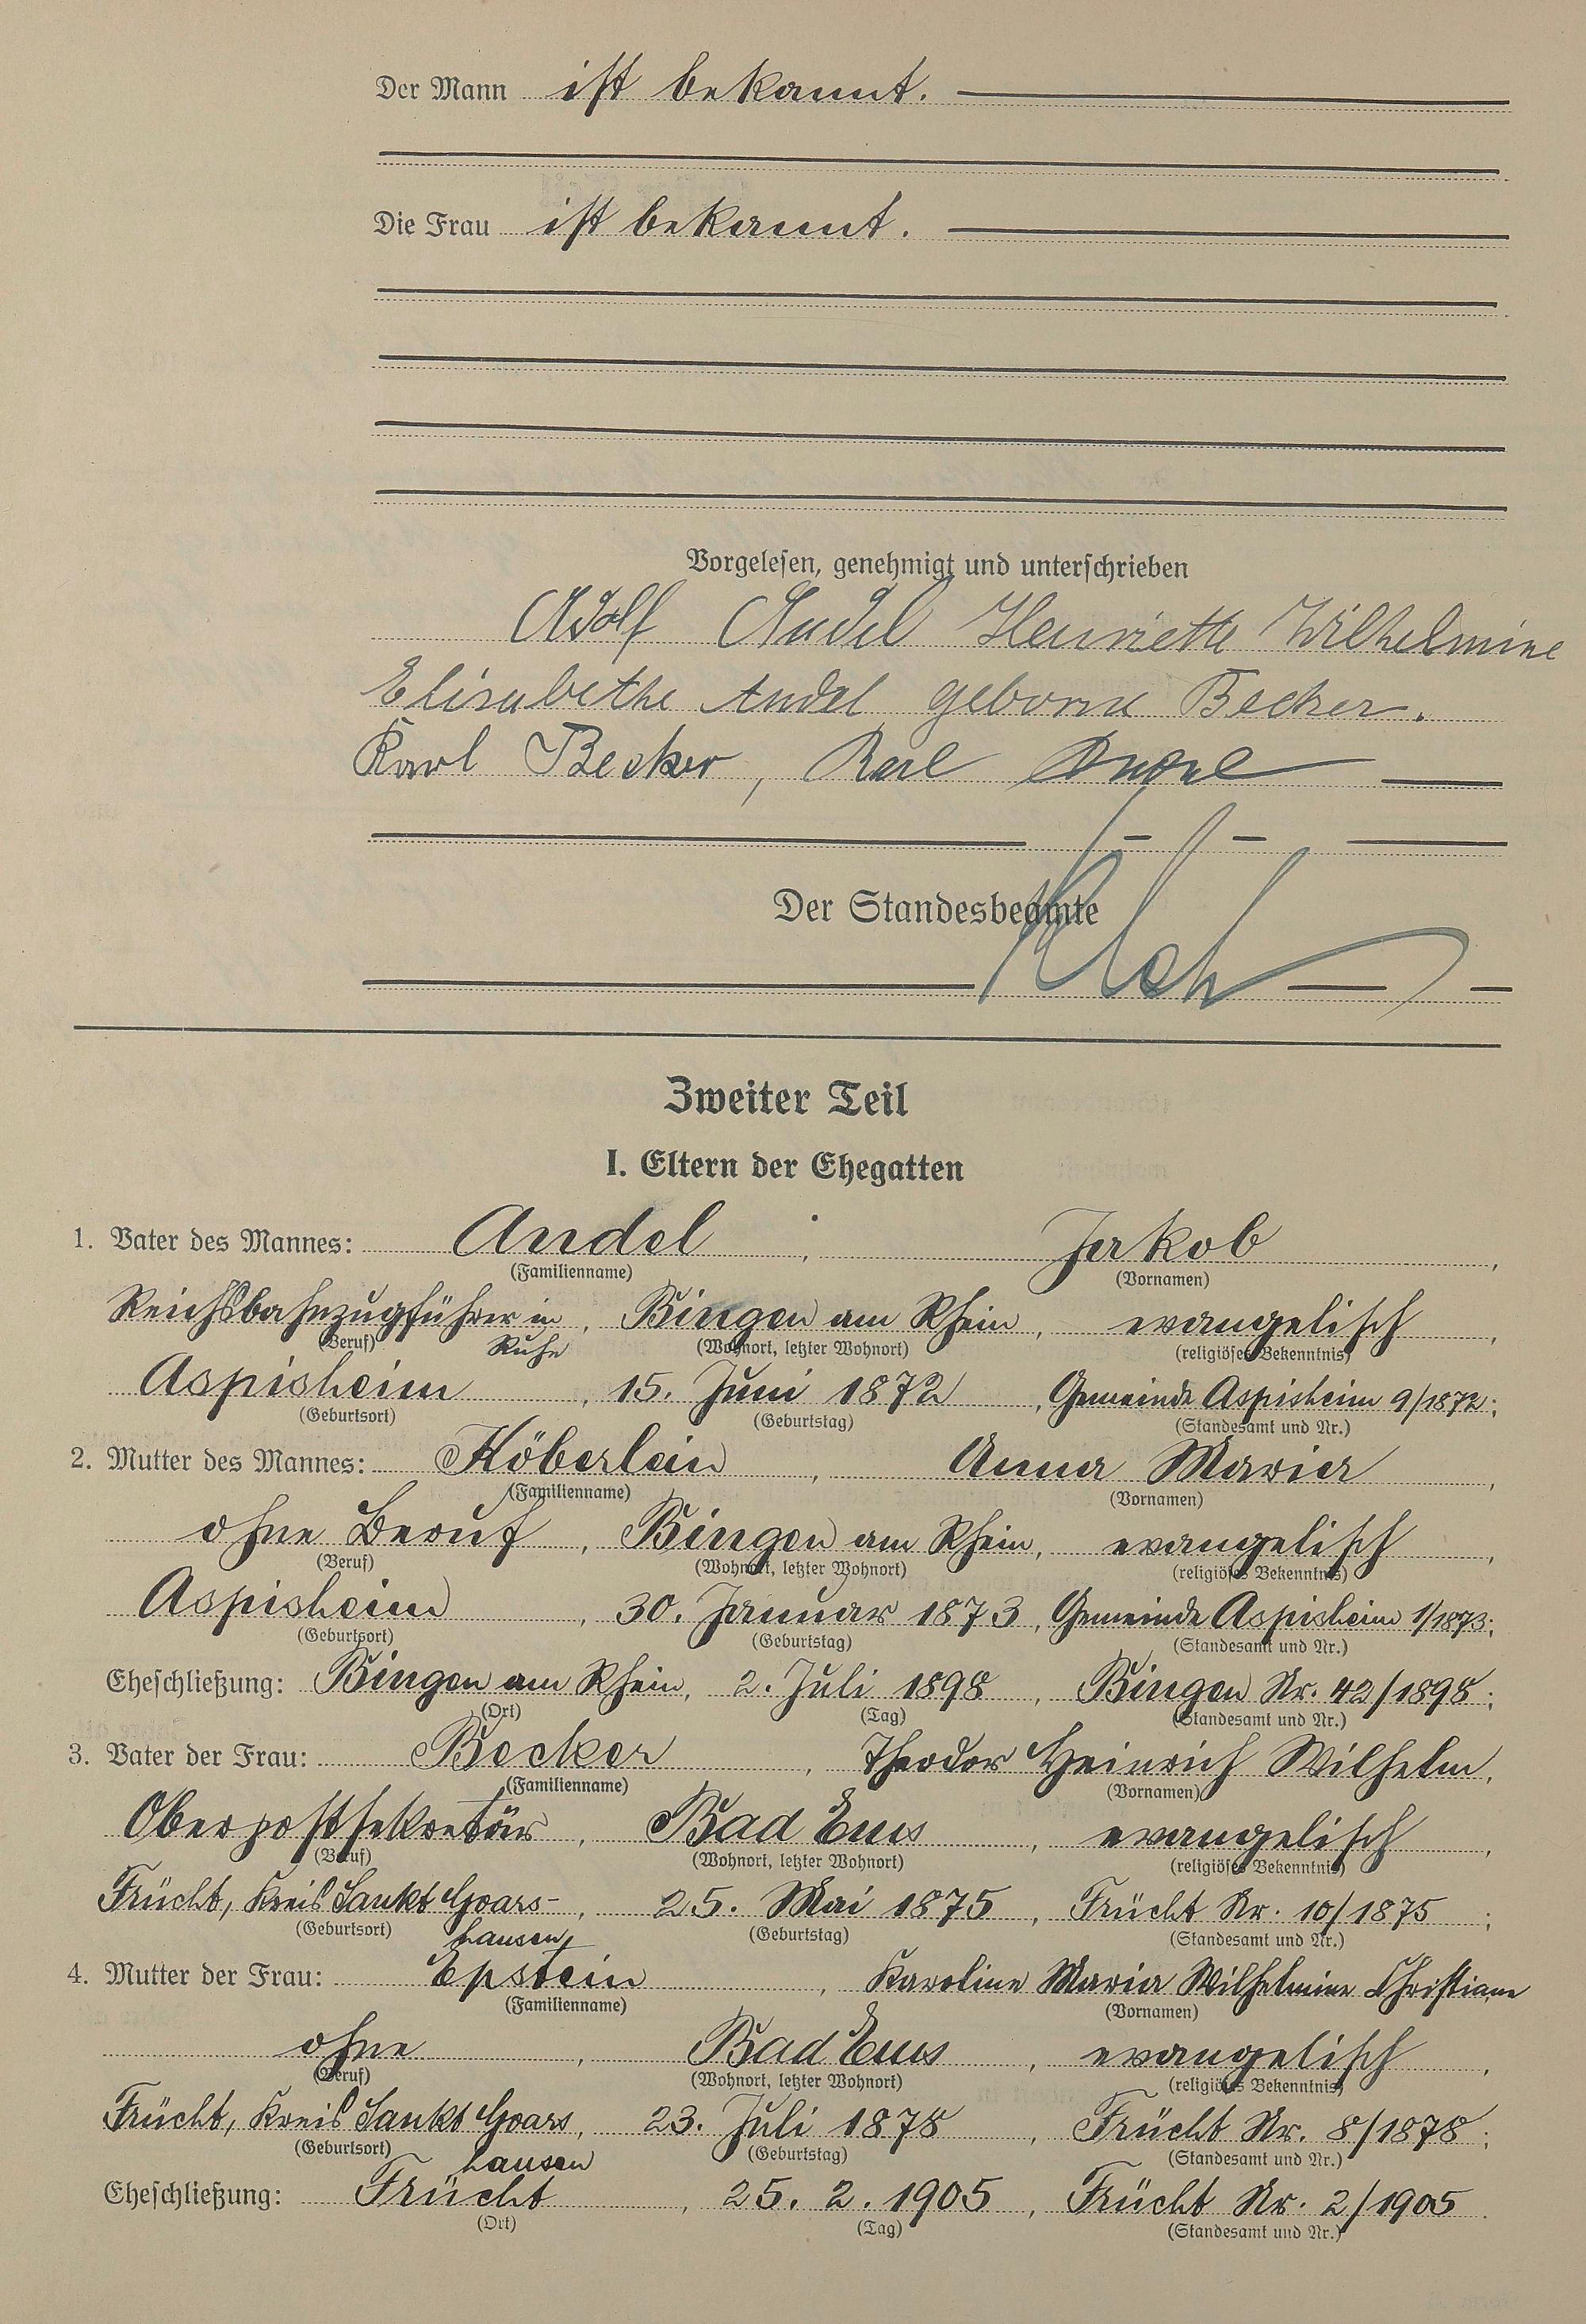 Der Mann ist bekannt.
Die Frau ist bekannt.
Vorgelesen, genehmigt und unterschrieben
Adolf Andel Henriette Wilhelmine
Elisabethe Andel geborene Becker.
Karl Becker, Karl Andel
Der Standesbeamte
Zweiter Teil
I. Eltern der Ehegatten
1. Vater des Mannes: Andel, Jakob,
(Familienname) (Vornamen)
Reichsbahnzugführer in Ruhe, Bingen am Rhein, evangelisch,
(Beruf) (Wohnort, letzter Wohnort) (religiöses Bekenntnis)
Aspisheim, 15. Juni 1872, Gemeinde Aspisheim 9/1872;
(Geburtsort) (Geburtstag) (Standesamt und Nr.)
2. Mutter des Mannes: Köberlein, Anna Maria,
(Familienname) (Vornamen)
ohne Beruf, Bingen am Rhein, evangelisch,
(Beruf) (Wohnort, letzter Wohnort) (religiöses Bekenntnis)
Aspisheim, 30. Januar 1873, Gemeinde Aspisheim 1/1873;
(Geburtsort) (Geburtstag) (Standesamt und Nr.)
Eheschließung: Bingen am Rhein, 2. Juli 1898, Bingen Nr. 42/1898;
(Ort) (Tag) (Standesamt und Nr.)
3. Vater der Frau: Becker, Theodor Heinrich Wilhelm,
(Familienname) (Vornamen)
Oberpostsekretär, Bad Ems, evangelisch,
(Beruf) (Wohnort, letzter Wohnort) (religiöses Bekenntnis)
Frücht, Kreis Sankt Goars-hausen, 25. Mai 1875, Frücht Nr. 10/1875;
(Geburtsort) (Geburtstag) (Standesamt und Nr.)
4. Mutter der Frau: Epstein, Karoline Maria Wilhelmine Christiane
(Familienname) (Vornamen)
ohne, Bad Ems, evangelisch,
(Beruf) (Wohnort, letzter Wohnort) (religiöses Bekenntnis)
Frücht, Kreis Sankt Goars hausen, 23. Juli 1878, Frücht Nr. 8/1878;
(Geburtsort) (Geburtstag) (Standesamt und Nr.)
Eheschließung: Frücht, 25. 2. 1905, Frücht Nr. 2/1905.
(Ort) (Tag) (Standesamt und Nr.)